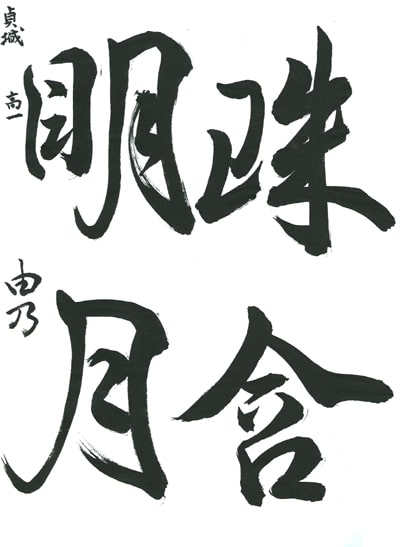 珠含
明月
貞城 高一 由乃